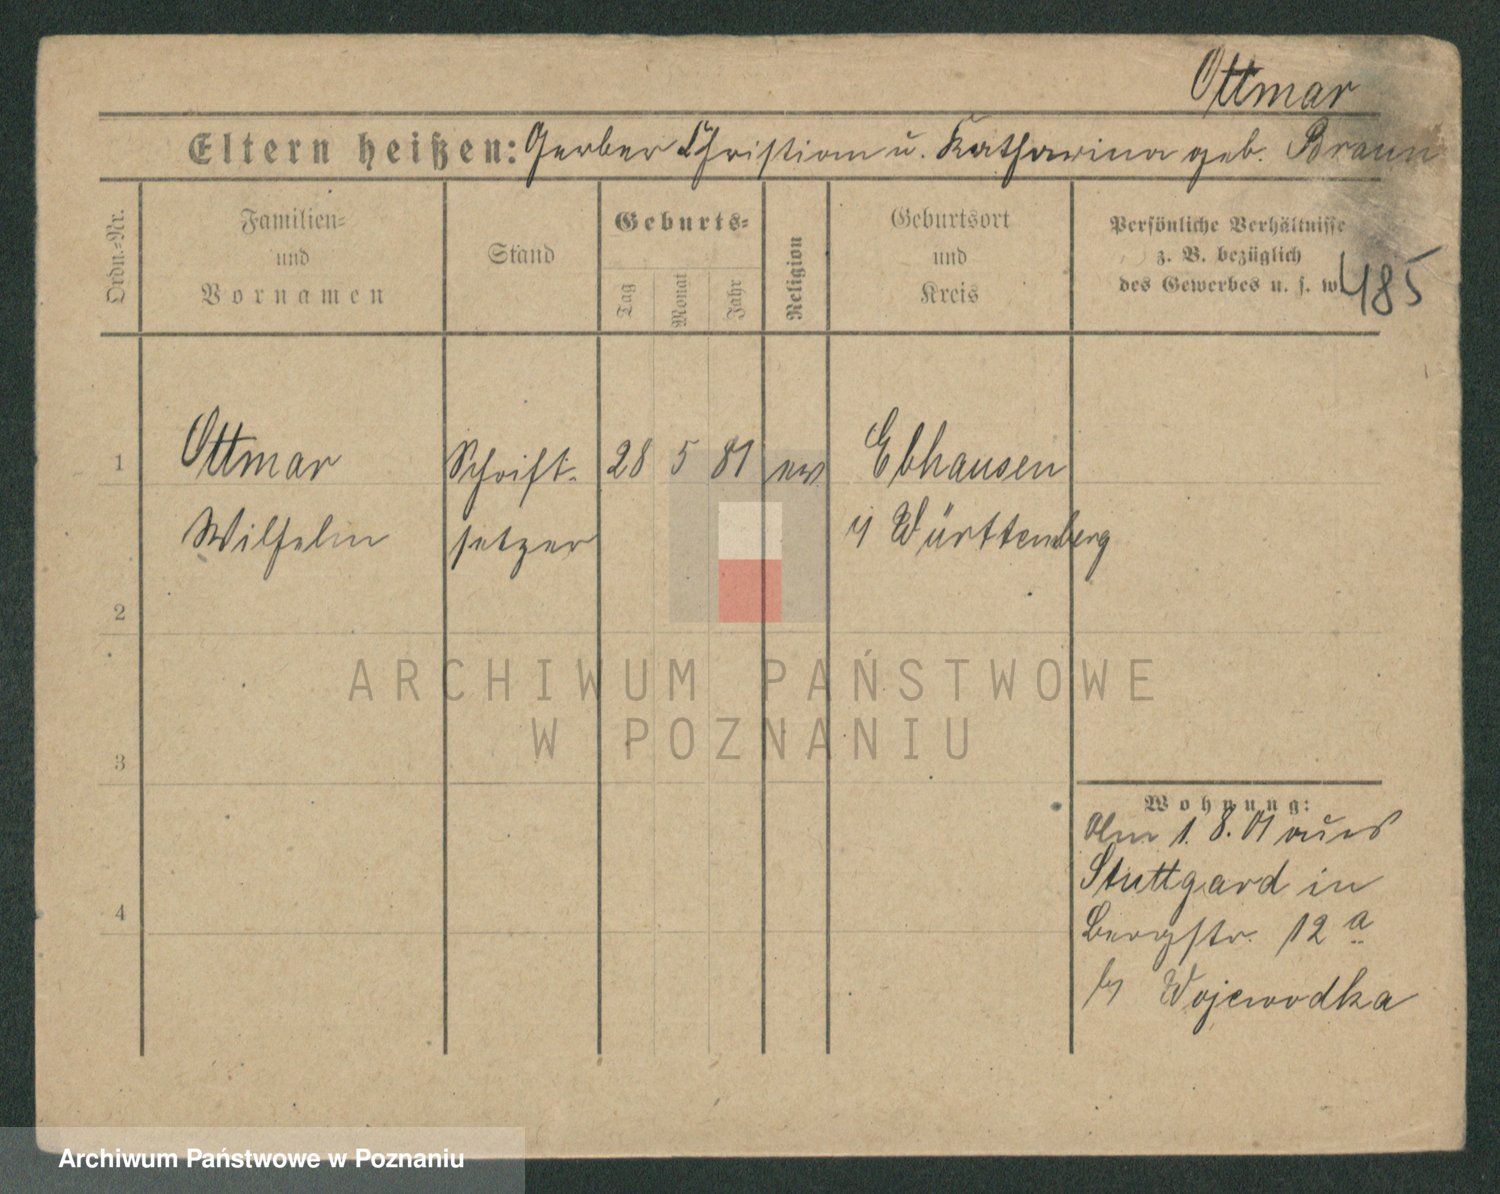 Ottmar
Eltern heißen: Gerber Christian u. Katharina geb. Braun
Ordn.-Nr.
Familien-
und
Vornamen
Stand
Geburts-
Tag
Monat
Jahr
Religion
Geburtsort
und
Kreis
Persönliche Verhältnisse
z. B. bezüglich
des Gewerbes u. s. w.
485
1 Ottmar Schrift- 28 5 81 ev. Ebhausen
Wilhelm setzer i/ Württemberg
2
ARCHIWUM PAŃSTWOWE
W POZNANIU
3
Wohnung:
Am 1. 8. 01 aus
Stuttgard in
4
Bergstr. 12 a
b/ Wojewodka
Archiwum Państwowe w Poznaniu